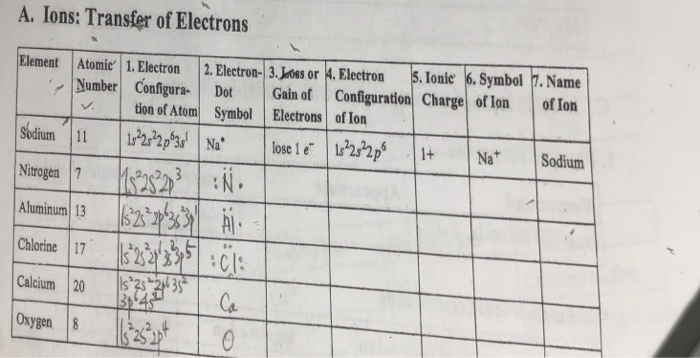 A. Ions: Transfer of Electrons
Element Atomic Number 1. Electron Configura-tion of Atom 2. Electron-Dot Symbol 3. Loss or Gain of Electrons 4. Electron Configuration of Ion 5. Ionic Charge 6. Symbol of Ion 7. Name of Ion
Sodium 11 1s²2s²2p⁶3s¹ Na• lose 1 e⁻ 1s²2s²2p⁶ 1+ Na⁺ Sodium
Nitrogen 7 1s²2s²2p³ :N̈.
Aluminum 13 1s²2s²2p⁶3s²3p¹ Äl.
Chlorine 17 1s²2s²2p⁶3s²3p⁵ :C̈l:
Calcium 20 1s²2s²2p⁶3s²
3p⁶4s² Ca
Oxygen 8 1s²2s²2p⁴ O